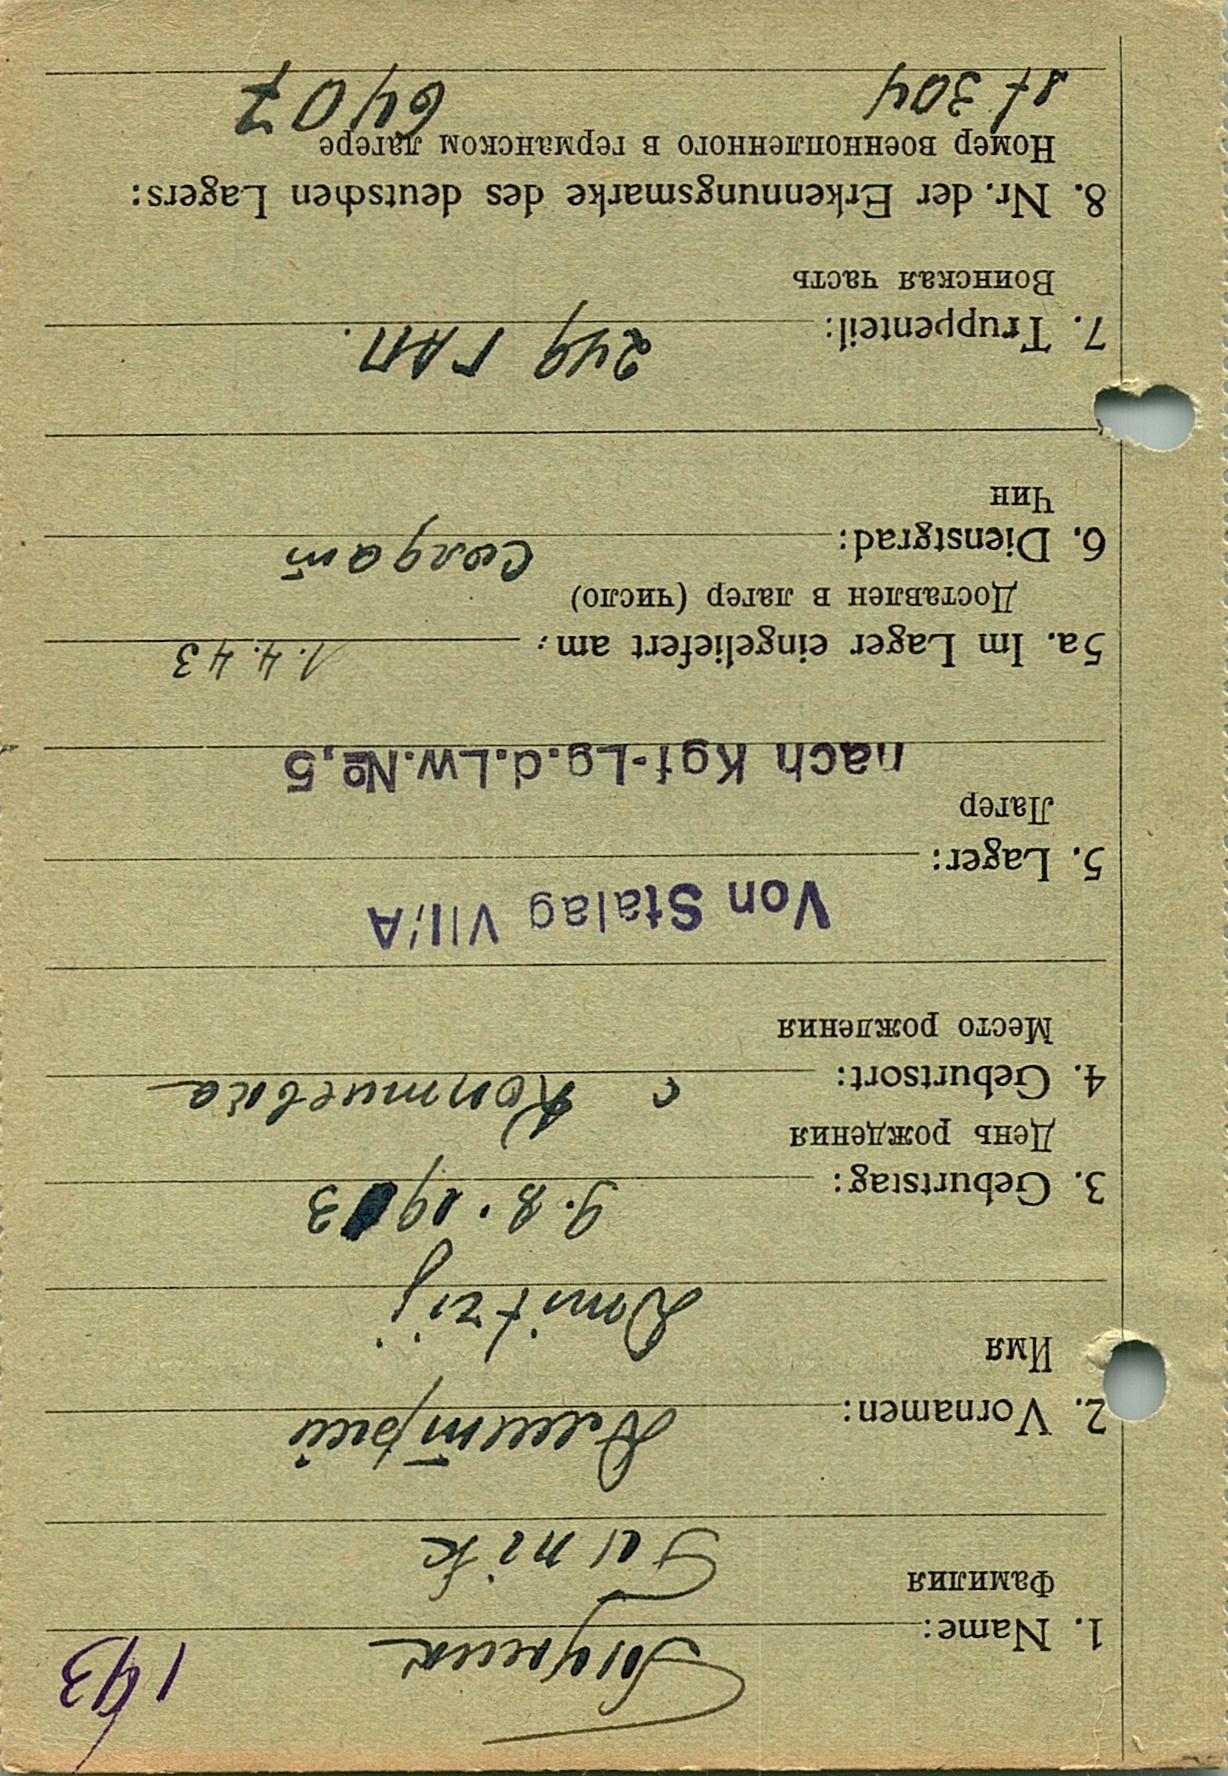 143
1. Name:
Фамилия
2. Vornamen: Дмитрий
Имя
Dmitrij
3. Geburtstag: 9.8.1913
День рождения
4. Geburtsort: с
Место рождения
Von Stalag VII/A
5. Lager:
Лагер
nach Kgf-Lg.d.Lw.№,5
5a. Im Lager eingeliefert am: 1.4.43
Доставлен в лагер (число)
6. Dienstgrad: Солдат
Чин
7. Truppenteil: 249 ГАП.
Воинская часть
8. Nr. der Erkennungsmarke des deutschen Lagers:
Номер военнопленного в германском лагере
304 6407